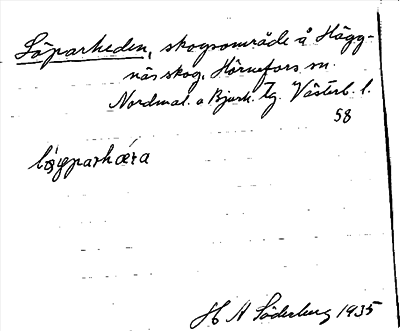 Löparheden, skogsområde å Hägg-
näs skog, Hörnefors sn
Nordmal. o Bjurh. tg. Västerb. l.
58
H A Söderberg 1935